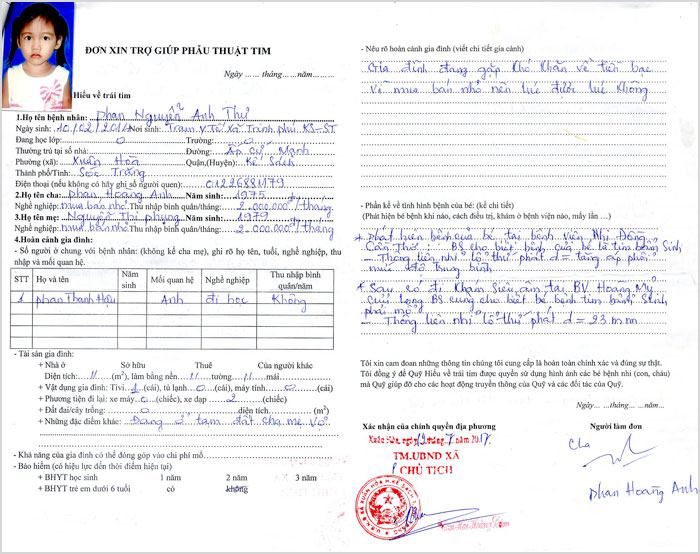 ĐƠN XIN TRỢ GIÚP PHẪU THUẬT TIM
Ngày …. tháng……năm………
Hiểu về trái tim
1.Họ tên bệnh nhân: phan Nguyễn Anh Thư
Ngày sinh: 10/02/2014 Nơi sinh: Trạm y tế xã Trinh phú KS-ST
Đang học lớp: 0 Trường: 0
Thường trú tại số nhà: Đường: Ấp cư Mạnh
Phường (xã): Xuân Hòa Quận,(Huyện): Kế Sách
Thành phố/Tỉnh: Sóc Trăng
Điện thoại (nếu không có hãy ghi số người quen): 01226881179
2.Họ tên cha: phan Hoàng Anh Năm sinh: 1975
Nghề nghiệp: mua bán nhỏ Thu nhập bình quân/tháng: 2.000.000đ/tháng
3.Họ tên mẹ: Nguyễn Thị phụng Năm sinh: 1979
Nghề nghiệp: mua bán nhỏ Thu nhập bình quân/tháng: 2.000.000đ/tháng
4.Hoàn cảnh gia đình:
- Số người ở chung với bệnh nhân: (không kể cha mẹ), ghi rõ họ tên, tuổi, nghề nghiệp, thu nhập và mối quan hệ.
STT Họ và tên Năm sinh Mối quan hệ Nghề nghiệp Thu nhập bình quân/năm
1 phan Thanh Anh đi học Không
- Tài sản gia đình:
+ Nhà ở Sở hữu Thuê Của người khác
Diện tích: 11 (m²), làm bằng nền 11 tường 11 mái
+ Vật dụng gia đình: Tivi 1 (cái), tủ lạnh 0 (cái), máy tính 0 (cái)
+ Phương tiện đi lại: xe máy 0 (chiếc), xe đạp 2 (chiếc)
+ Đất đai/cây trồng: 0 diện tích (m²)
+ Những đặc điểm khác: Đang ở tạm đất cha mẹ vợ.
- Khả năng của gia đình có thể đóng góp vào chi phí mổ
- Bảo hiểm (có hiệu lực đến thời điểm hiện tại)
+ BHYT học sinh 1 năm 2 năm 3 năm
+ BHYT trẻ em dưới 6 tuổi có không
- Nêu rõ hoàn cảnh gia đình (viết chi tiết gia cảnh)
Gia đình đang gặp khó khăn về tiền bạc
Vì mua bán nhỏ nên lúc được lúc không
- Phần kể về tình hình bệnh của bé: (kể chi tiết)
(Phát hiện bé bệnh khi nào, cách điều trị, khám ở bệnh viện nào, mấy lần …)
+ phát hiện bệnh của bé tại bệnh viện Nhi Đồng
Cần Thơ. BS cho biết bệnh của bé là tim bẩm Sinh
- Thông liên nhĩ lổ thứ phát d = tăng áp phổi
mức độ trung bình
* Sau đó đi Khám Siêu âm tại BV. Hoàng Mỹ
Cửu Long BS cũng cho biết bé bệnh tim bẩm Sinh
phải mổ
- Thông liên nhĩ lổ thứ phát d = 23 mm
Tôi xin cam đoan những thông tin chúng tôi cung cấp là hoàn toàn chính xác và đúng sự thật.
Tôi đồng ý để Quỹ Hiểu về trái tim được quyền sử dụng hình ảnh các bé bệnh nhi (con, cháu)
mà Quỹ giúp đỡ cho các hoạt động truyền thông của Quỹ và các đối tác của Quỹ.
Ngày… …tháng… …năm… …
Xác nhận của chính quyền địa phương Người làm đơn
Xuân Hòa, ngày 19 tháng 7 năm 2017
TM.UBND XÃ
CHỦ TỊCH
Cha
phan Hoàng Anh